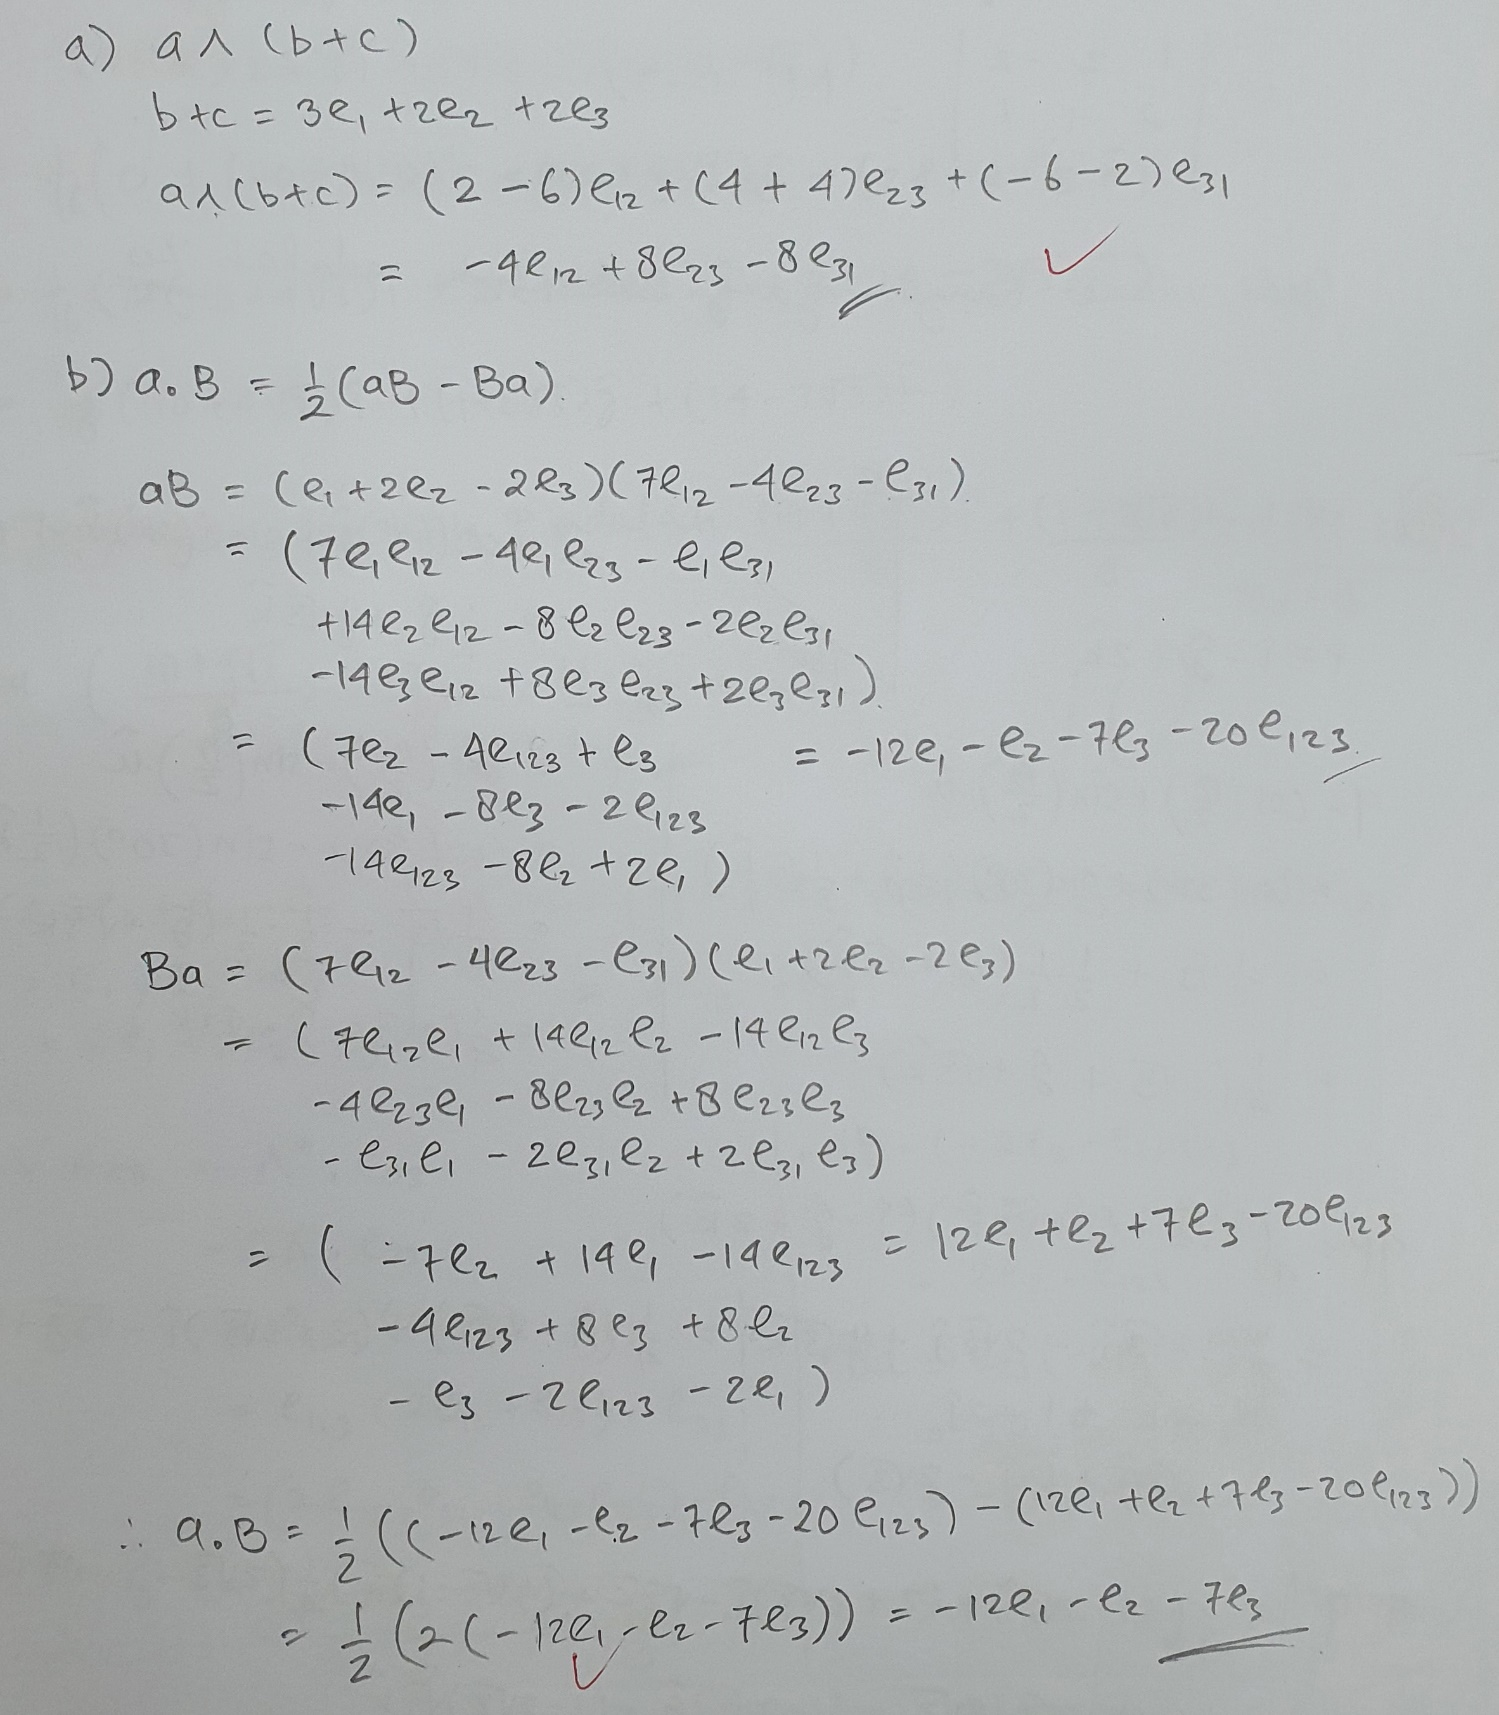 a) a ∧ (b+c)
b+c = 3e₁ +2e₂ +2e₃
a∧(b+c) = (2 -6)e₁₂ + (4 + 4)e₂₃ + (-6-2)e₃₁
= -4e₁₂ +8e₂₃ -8e₃₁ ✓
b) a.B = ½(aB - Ba).
aB = (e₁ +2e₂ -2e₃)(7e₁₂ -4e₂₃ -e₃₁).
= (7e₁e₁₂ -4e₁e₂₃ -e₁e₃₁
+14e₂e₁₂ -8e₂e₂₃ -2e₂e₃₁
-14e₃e₁₂ +8e₃e₂₃ +2e₃e₃₁).
= (7e₂ -4e₁₂₃ + e₃ = -12e₁ -e₂ -7e₃ -20e₁₂₃.
-14e₁ -8e₃ -2e₁₂₃
-14e₁₂₃ -8e₂ +2e₁)
Ba = (7e₁₂ -4e₂₃ -e₃₁)(e₁ +2e₂ -2e₃)
= (7e₁₂e₁ +14e₁₂e₂ -14e₁₂e₃
-4e₂₃e₁ -8e₂₃e₂ +8e₂₃e₃
-e₃₁e₁ -2e₃₁e₂ +2e₃₁e₃)
= (-7e₂ +14e₁ -14e₁₂₃ = 12e₁ +e₂ +7e₃ -20e₁₂₃
-4e₁₂₃ +8e₃ +8e₂
-e₃ -2e₁₂₃ -2e₁)
∴ a.B = ½((-12e₁ -e₂ -7e₃ -20e₁₂₃) - (12e₁ +e₂ +7e₃ -20e₁₂₃))
= ½(2(-12e₁ -e₂ -7e₃)) = -12e₁ -e₂ -7e₃
✓